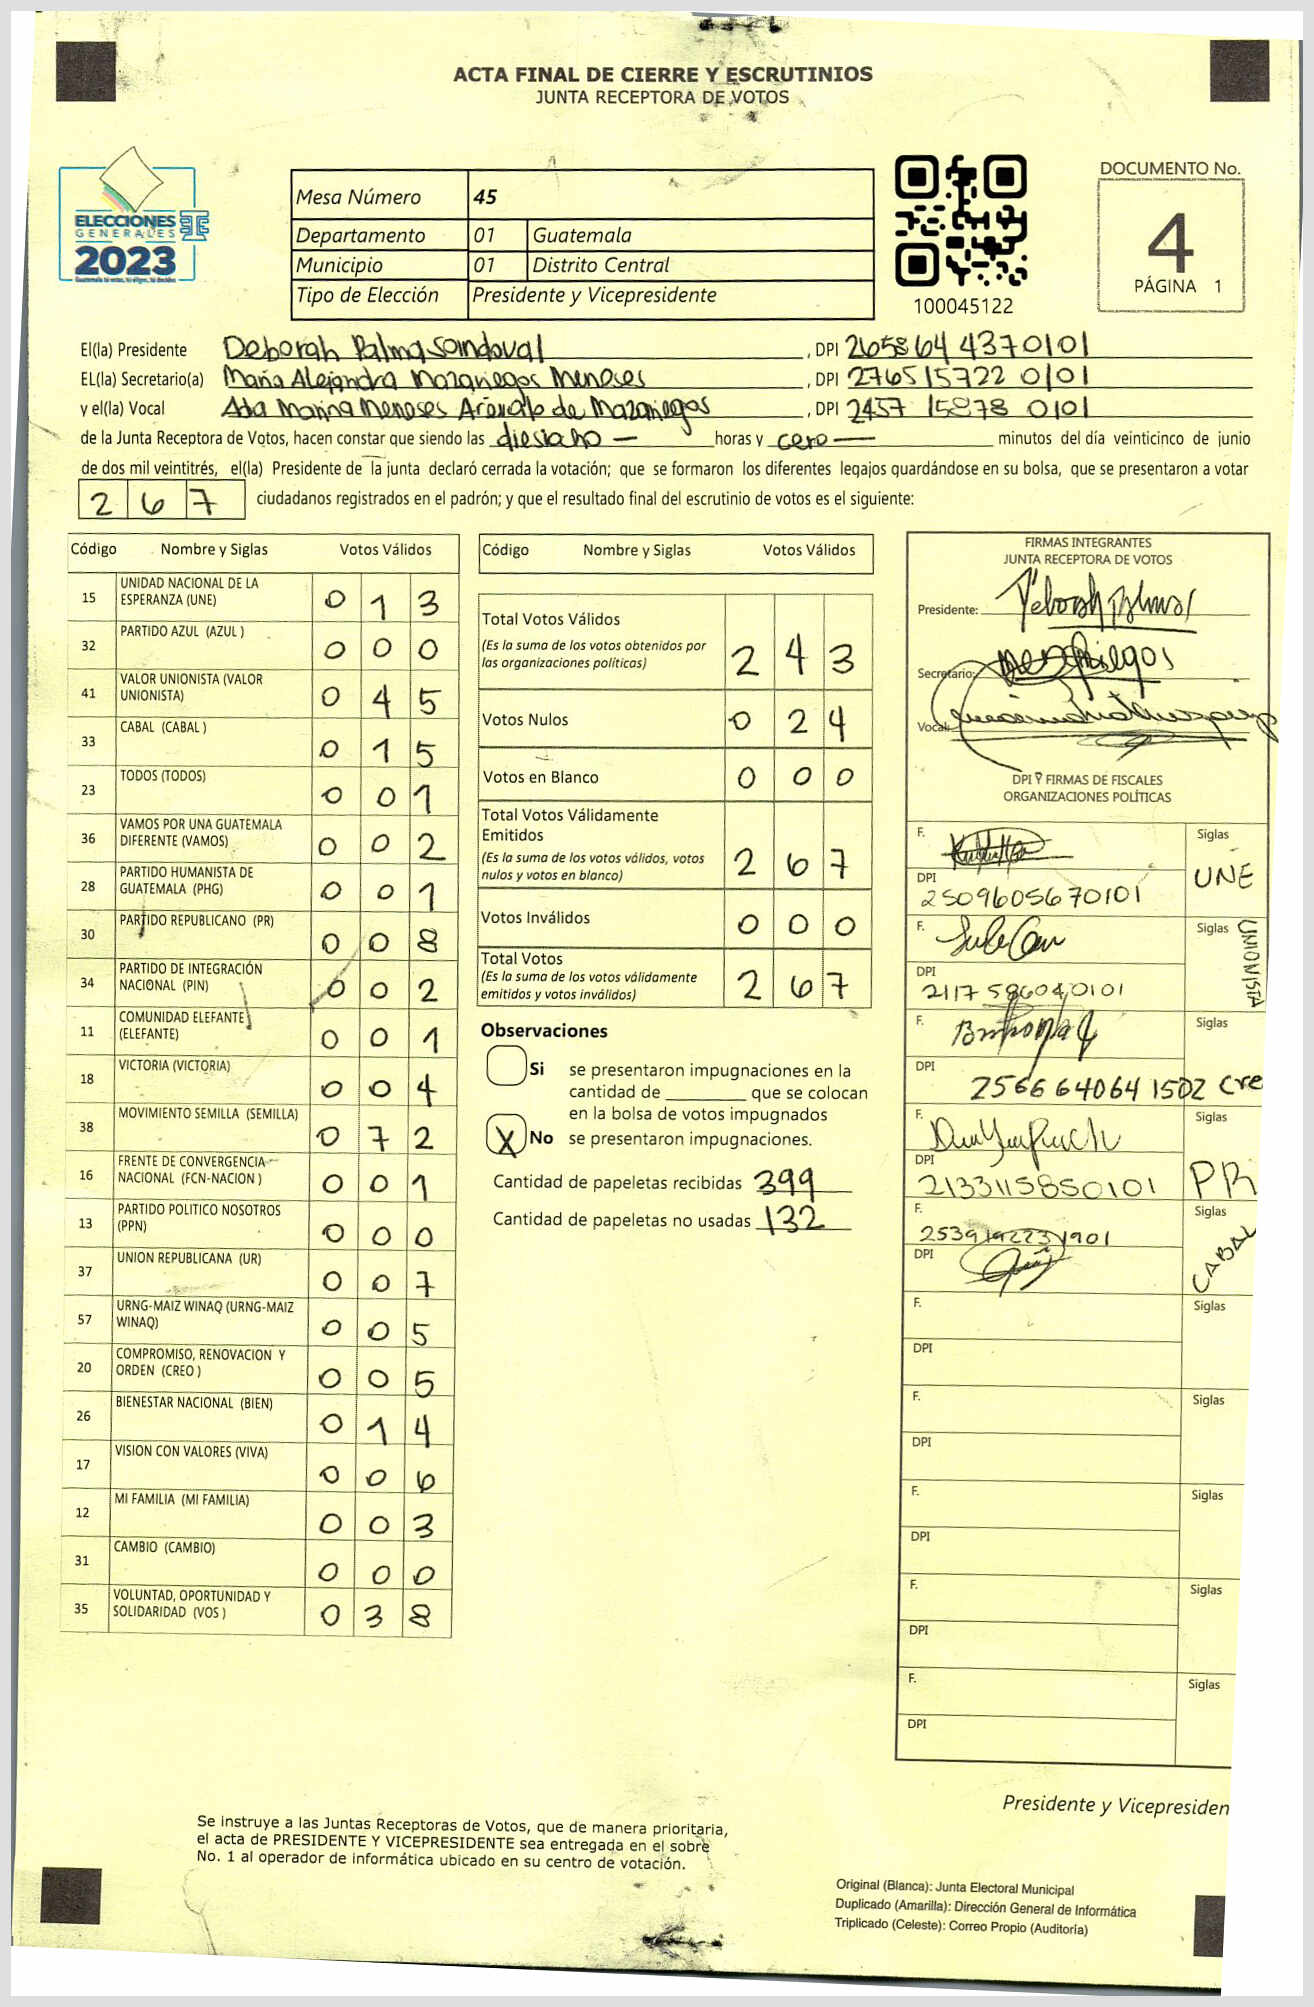 ACTA FINAL DE CIERRE Y ESCRUTINIOS
JUNTA RECEPTORA DE VOTOS
ELECCIONES
GENERALES
2023
Mesa Número 45
Departamento 01 Guatemala
Municipio 01 Distrito Central
Tipo de Elección Presidente y Vicepresidente
100045122
DOCUMENTO No.
4
PÁGINA 1
El(la) Presidente Deborah Palma Sandoval , DPI 2658644370101
EL(la) Secretario(a) Maria Alejandra Mazariegos Meneses , DPI 276515722 0101
y el(la) Vocal Ada Marina Meneses Arevalo de Mazariegos , DPI 2457 15878 0101
de la Junta Receptora de Votos, hacen constar que siendo las diesiocho — horas y cero — minutos del día veinticinco de junio
de dos mil veintitrés, el(la) Presidente de la junta declaró cerrada la votación; que se formaron los diferentes legajos quardándose en su bolsa, que se presentaron a votar
2 6 7 ciudadanos registrados en el padrón; y que el resultado final del escrutinio de votos es el siguiente:
Código Nombre y Siglas Votos Válidos
15 UNIDAD NACIONAL DE LA ESPERANZA (UNE) 0 1 3
32 PARTIDO AZUL (AZUL ) 0 0 0
41 VALOR UNIONISTA (VALOR UNIONISTA) 0 4 5
33 CABAL (CABAL ) 0 1 5
23 TODOS (TODOS) 0 0 1
36 VAMOS POR UNA GUATEMALA DIFERENTE (VAMOS) 0 0 2
28 PARTIDO HUMANISTA DE GUATEMALA (PHG) 0 0 1
30 PARTIDO REPUBLICANO (PR) 0 0 8
34 PARTIDO DE INTEGRACIÓN NACIONAL (PIN) 0 0 2
11 COMUNIDAD ELEFANTE (ELEFANTE) 0 0 1
18 VICTORIA (VICTORIA) 0 0 4
38 MOVIMIENTO SEMILLA (SEMILLA) 0 7 2
16 FRENTE DE CONVERGENCIA NACIONAL (FCN-NACION ) 0 0 1
13 PARTIDO POLITICO NOSOTROS (PPN) 0 0 0
37 UNION REPUBLICANA (UR) 0 0 7
57 URNG-MAIZ WINAQ (URNG-MAIZ WINAQ) 0 0 5
20 COMPROMISO, RENOVACION Y ORDEN (CREO ) 0 0 5
26 BIENESTAR NACIONAL (BIEN) 0 1 4
17 VISION CON VALORES (VIVA) 0 0 6
12 MI FAMILIA (MI FAMILIA) 0 0 3
31 CAMBIO (CAMBIO) 0 0 0
35 VOLUNTAD, OPORTUNIDAD Y SOLIDARIDAD (VOS ) 0 3 8
Código Nombre y Siglas Votos Válidos
Total Votos Válidos
(Es la suma de los votos obtenidos por
las organizaciones políticas) 2 4 3
Votos Nulos 0 2 4
Votos en Blanco 0 0 0
Total Votos Válidamente
Emitidos
(Es la suma de los votos válidos, votos
nulos y votos en blanco) 2 6 7
Votos Inválidos 0 0 0
Total Votos
(Es la suma de los votos válidamente
emitidos y votos inválidos) 2 6 7
Observaciones
Si se presentaron impugnaciones en la
cantidad de ________ que se colocan
en la bolsa de votos impugnados
X No se presentaron impugnaciones.
Cantidad de papeletas recibidas 399
Cantidad de papeletas no usadas 132
FIRMAS INTEGRANTES
JUNTA RECEPTORA DE VOTOS
Presidente:
Secretario:
Vocal:
DPI Y FIRMAS DE FISCALES
ORGANIZACIONES POLÍTICAS
F. Siglas
UNE
DPI
2509605670101
F. Siglas UNIONISTA
DPI
2117 586040101
F. Siglas
DPI
2566 64064 1502 Cre
F. Siglas
DPI
2133115850101 PR
F. Siglas
CABAL
DPI
F. Siglas
DPI
F. Siglas
DPI
F. Siglas
DPI
F. Siglas
DPI
F. Siglas
DPI
Presidente y Vicepresiden
Se instruye a las Juntas Receptoras de Votos, que de manera prioritaria,
el acta de PRESIDENTE Y VICEPRESIDENTE sea entregada en el sobre
No. 1 al operador de informática ubicado en su centro de votación.
Original (Blanca): Junta Electoral Municipal
Duplicado (Amarilla): Dirección General de Informática
Triplicado (Celeste): Correo Propio (Auditoría)